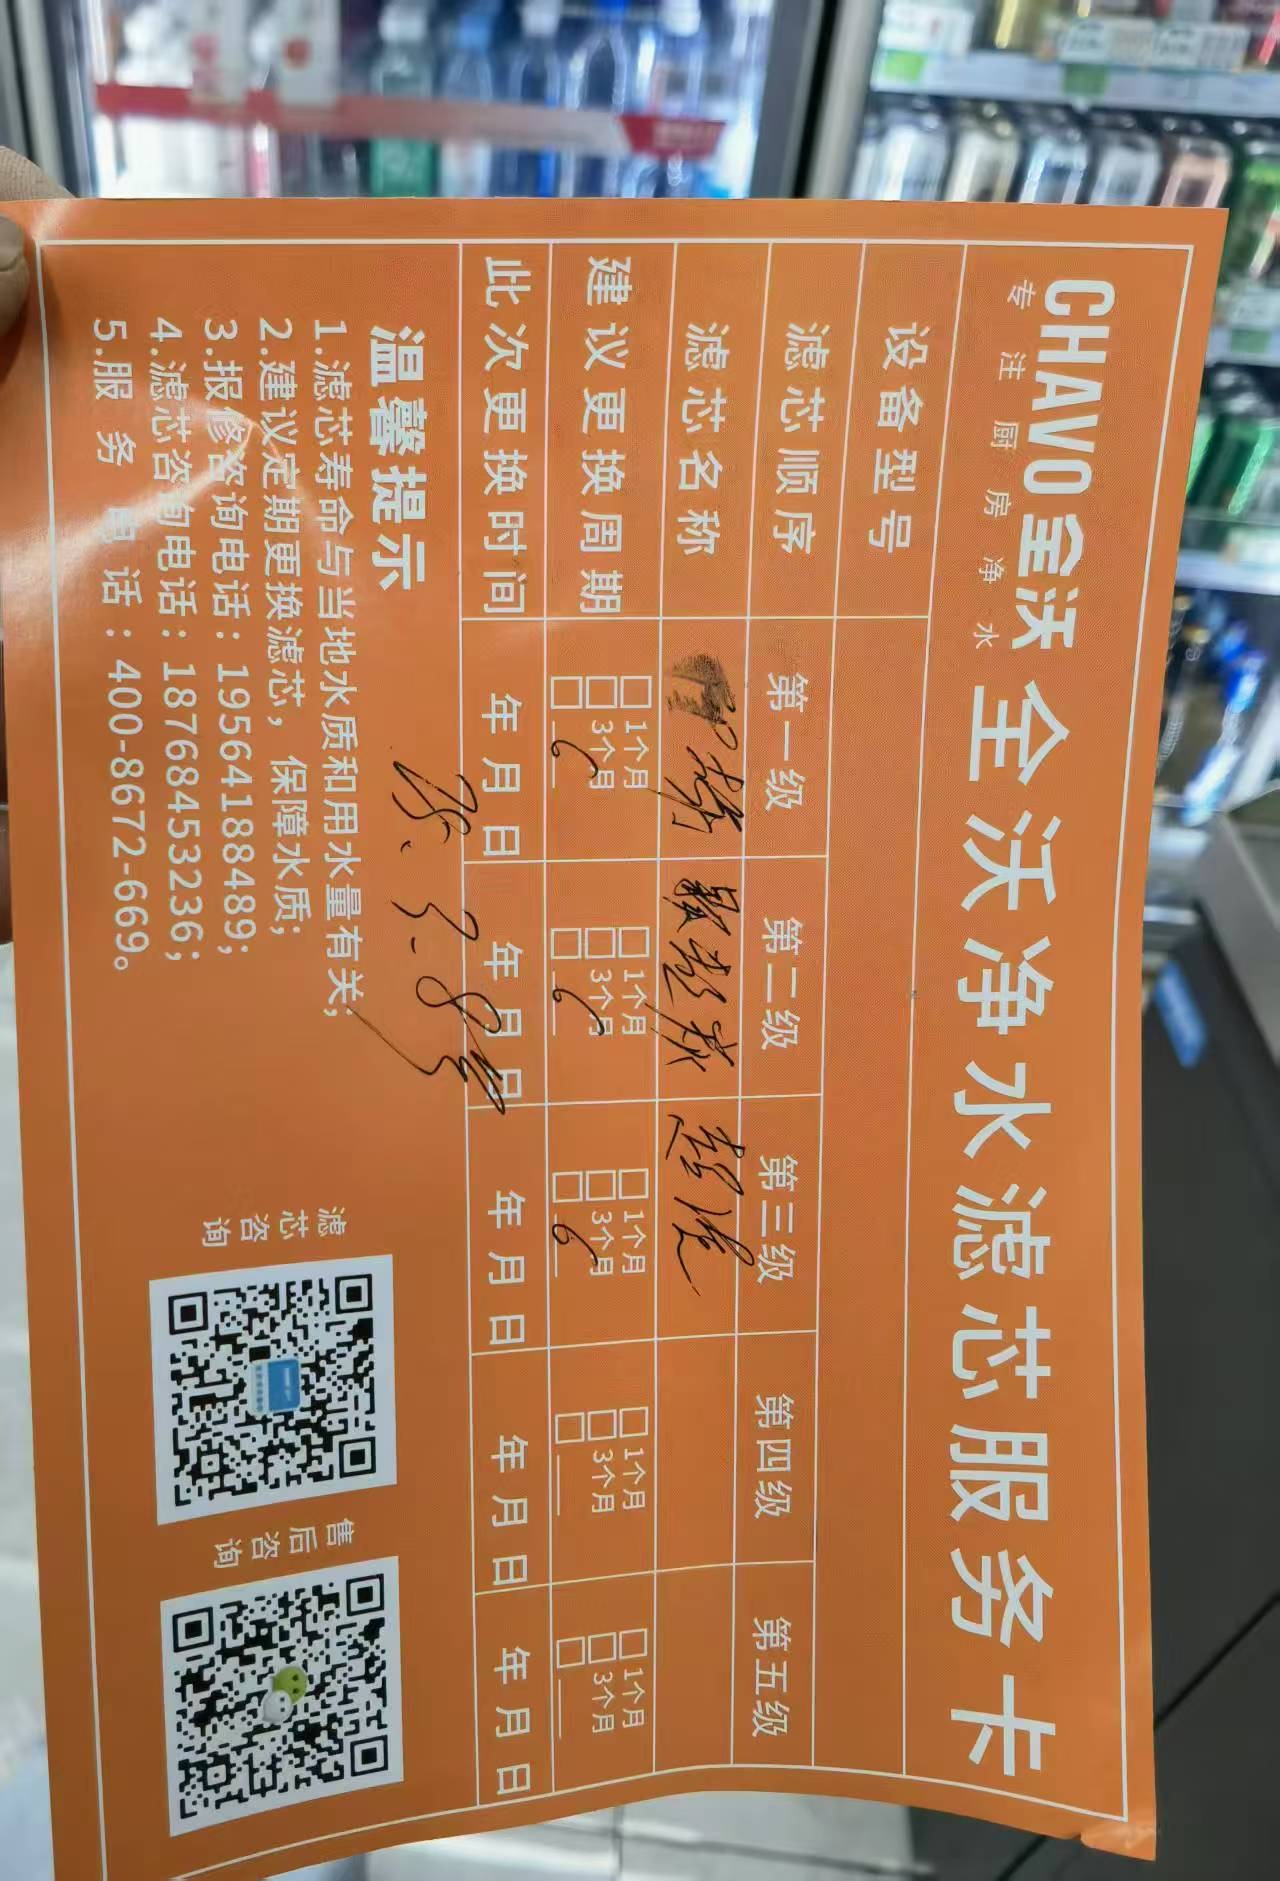 CHAVO全沃
专注厨房净水
全沃净水滤芯服务卡
设备型号
滤芯顺序 第一级 第二级 第三级 第四级 第五级
滤芯名称
建议更换周期 □1个月 □3个月 □6 □1个月 □3个月 □6 □1个月 □3个月 □6 □1个月 □3个月 □__ □1个月 □3个月 □__
此次更换时间 年月日 年月日 年月日 年月日 年月日
温馨提示
1.滤芯寿命与当地水质和用水量有关;
2.建议定期更换滤芯，保障水质;
3.报修咨询电话: 19564188489;
4.滤芯咨询电话: 18768453236;
5.服务电话: 400-8672-669。
滤芯咨询
售后咨询